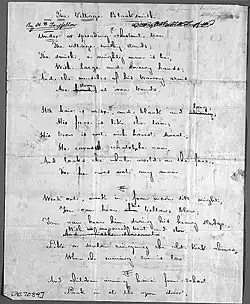 The Village Blacksmith
By H. W. Longfellow
Under a spreading chestnut tree
The village smithy stands;
The smith, a mighty man is he,
With large and sinewy hands;
And the muscles of his brawny arms
Are strong as iron bands.
His hair is crisp, and black and long;
His face is like the tan;
His brow is wet with honest sweat;
He earns whate'er he can
And looks the whole world in the face,
For he owes not any man.
Week out, week in, from morn till night,
You can hear his bellows blow
You can hear him swing his heavy sledge,
With
Like a sexton ringing the
When the evening sun is low
And children coming home from school
Look in at the open door;